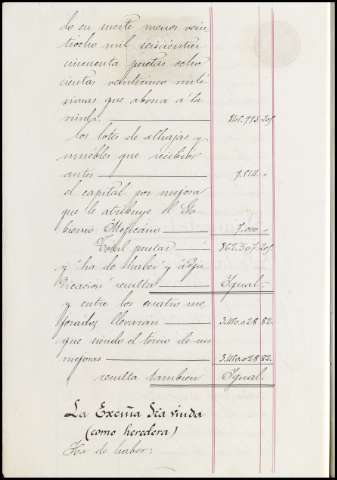 de su suerte menos vein
tiocho mil seiscientas
cincuenta pesetas ocho
cientas veinticinco milé
simas que abona á la
viuda.
los lotes de alhajas y
muebles que reciben
antes
el capital por mejora
que le atribuye el Go
bierno Mejicano 7.000 "
Total pesetas
y "ha de haber" y adju
dicacion resulta Igual.
y entre los cuatro me
jorados llevaran
que siendo el tercio de sus
mejoras
resulta tambien Igual.
La Excma Sra viuda
(como heredera)
Ha de haber: